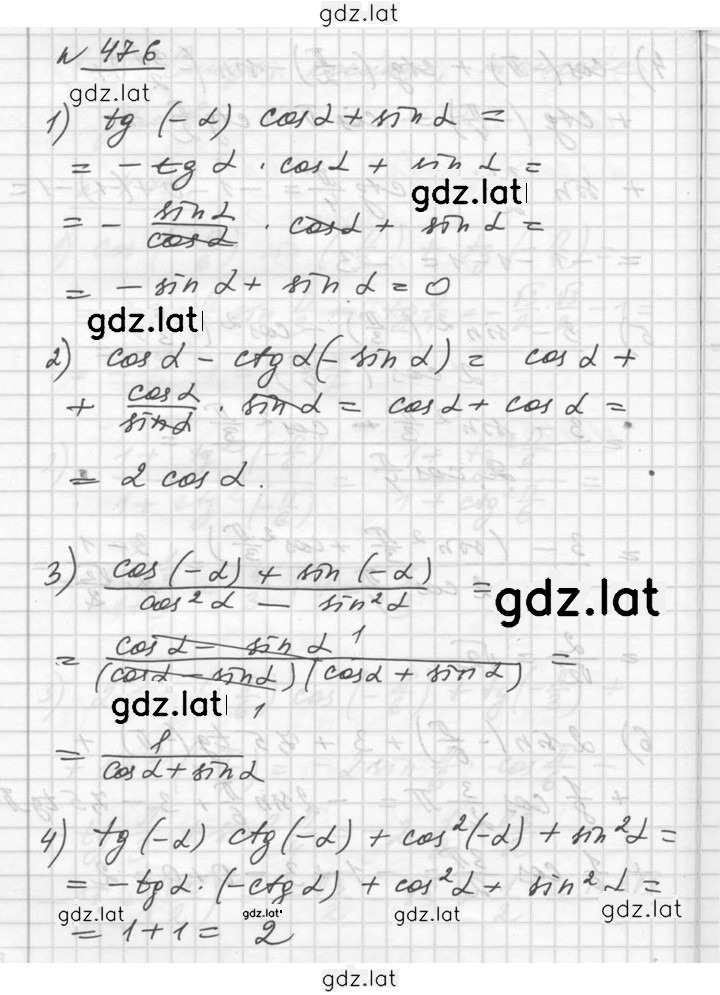 gdz.lat
N 476
gdz.lat
1) tg (-α) cosα + sinα =
= - tgα · cosα + sinα =
gdz.lat
= - sinα/cosα · cosα + sinα =
= - sinα + sinα = 0
gdz.lat
2) cosα - ctgα(-sinα) = cosα +
+ cosα/sinα · sinα = cosα + cosα =
= 2 cosα.
3) (cos(-α) + sin(-α))/(cos²α - sin²α) =
gdz.lat
= (cosα - sinα)/((cosα - sinα)(cosα + sinα)) =
gdz.lat
= 1/(cosα + sinα)
4) tg(-α) ctg(-α) + cos²(-α) + sin²α =
= -tgα · (-ctgα) + cos²α + sin²α =
gdz.lat gdz.lat gdz.lat gdz.lat
= 1 + 1 = 2
gdz.lat